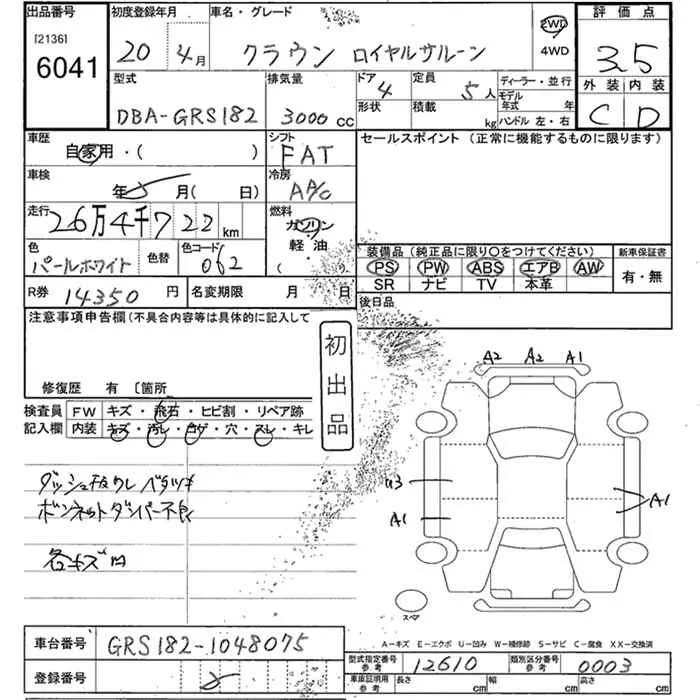 出品番号 初度登録年月 車名・グレード 2WD 評価点
[2136]
6041 20 4月 クラウン ロイヤルサルーン 4WD 3.5
型式 排気量 ドア 4 定員 5人 ディーラー・並行 外装 内装
DBA-GRS182 3000cc 形状 積載 kg モデル年式 年 C D
ハンドル 左・右
車歴 シフト セールスポイント (正常に機能するものに限ります)
自家用・( ) FAT
車検 冷房
年 月( 日) AAC
走行 26万4千722km 燃料
ガソリン
色 色替 色コード 軽油 装備品 (純正品に限り○をつけてください) 新車保証書
パールホワイト 062 ( ) PS PW ABS エアB AW 有・無
SR ナビ TV 本革
R券 14350円 名変期限 月 日 後日品
注意事項申告欄(不具合内容等は具体的に記入して
初出品
修復歴 有 〔箇所
A2 A2 A1
検査員 FW キズ・飛石・ヒビ割・リペア跡
記入欄 内装 キズ・汚レ・コゲ・穴・スレ・キレ
ダッシュ板ウレ ベタツキ U3
ボンネットダンパー不良 A1 A1
各キズ凹
スペア
A-キズ E-エクボ U-凹み W-補修跡 S-サビ C-腐食 XX-交換済
車台番号 GRS182-1048075
型式指定番号 参考 12610 類別区分番号 参考 0003
登録番号 車庫証明用 参考 長さ cm 幅 cm 高さ cm